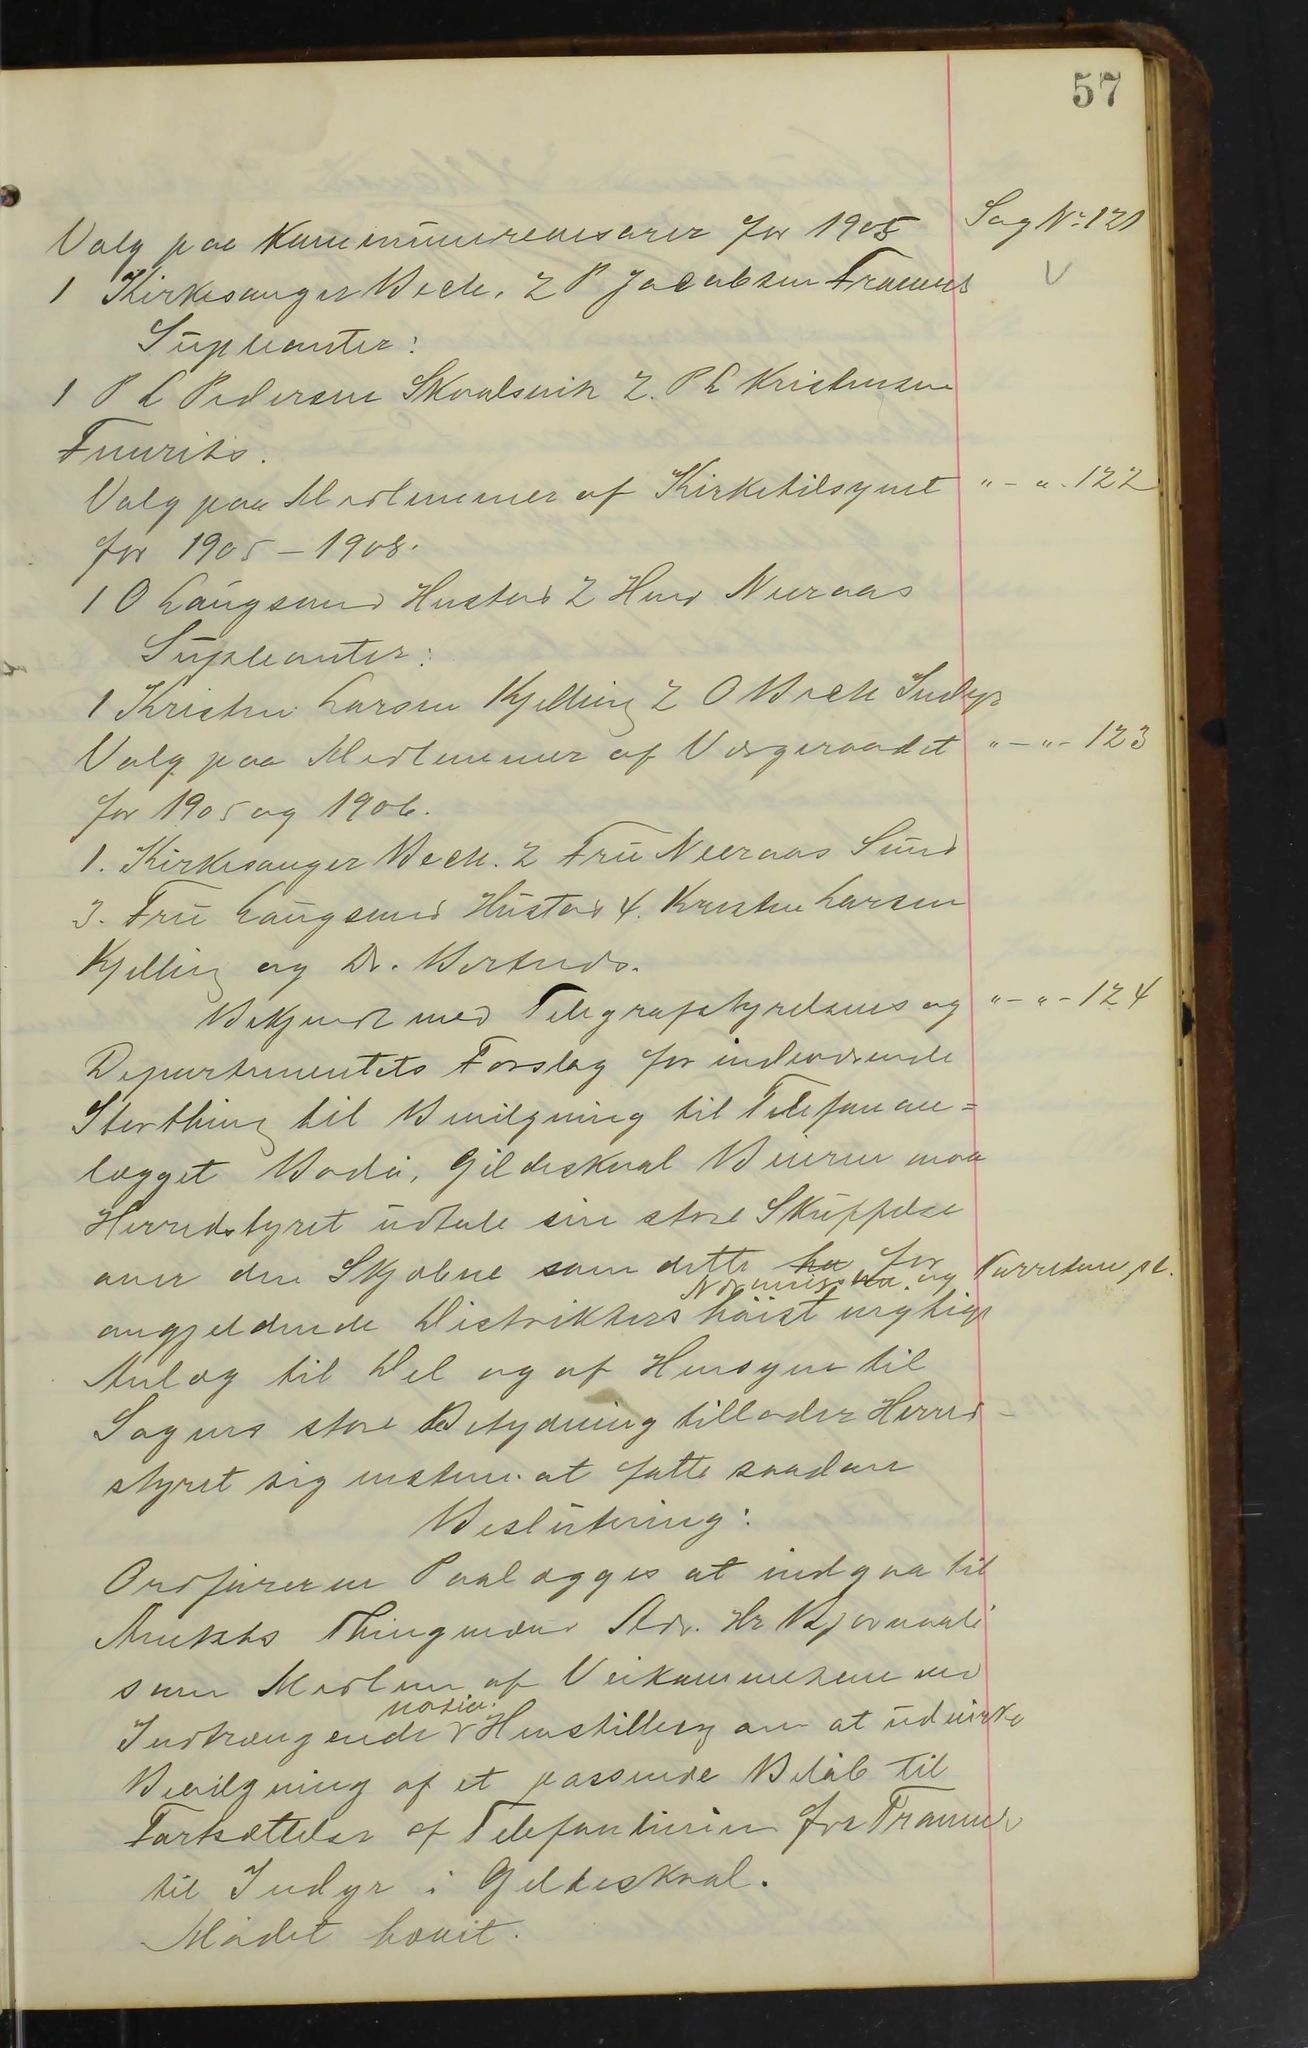 57
Valg paa Kommunerevisorer for 1905 Sag No 121
1 Kirkesanger Bech. 2 P Jacobsen Framnes V
Supleanter:
1 P L Pedersen Skoalsvik 2. P L Kristensen
Fuuriks.
Valg paa Medlemmer af Kirketilsynet "-"-122
for 1905-1908.
1 O Laugsand Hustad 2 Hmd Neeraas
Supleanter:
1 Kristen Larsen Kjelling 2 O Bech Indyr
Valg paa Medlemmer af Vergeraadet "-"-123
for 1905 og 1906.
1. Kirkesanger Bech. 2 Fru Neeraas Sund
3. Fru Laugsand Hustad 4. Kristen Larsen
Kjelling og Dr.
Bekjendt med Telegrafstyrelsens og "-"-124
Departementets Forslag for indeværende
Storthing til Bevilgning til Telefonan=
lægget Bodø, Gildeskaal Beieren maa
Herredstyret udtale sin store Skuffelse
over den Skjæbne som dette ha for
og Rettelse
angjeldende Distrikters høist nytige
Anlæg til Del og af Hensyn til
Sagens store Betydning tillader Herred-
styret sig at fatte saadan
Beslutning:
Ordføreren Paalægges at indgaa til
Amtets Thingmænd Adr. Hr
som Medlem af Veikommiteen med
Indtrængende Henstilling om at udvirke
Bevilgning af et passende Beløb til
Fortsættelse af Telefonlinien fra Framnes
til Indyr i Gildeskaal.
Mødet hævet.